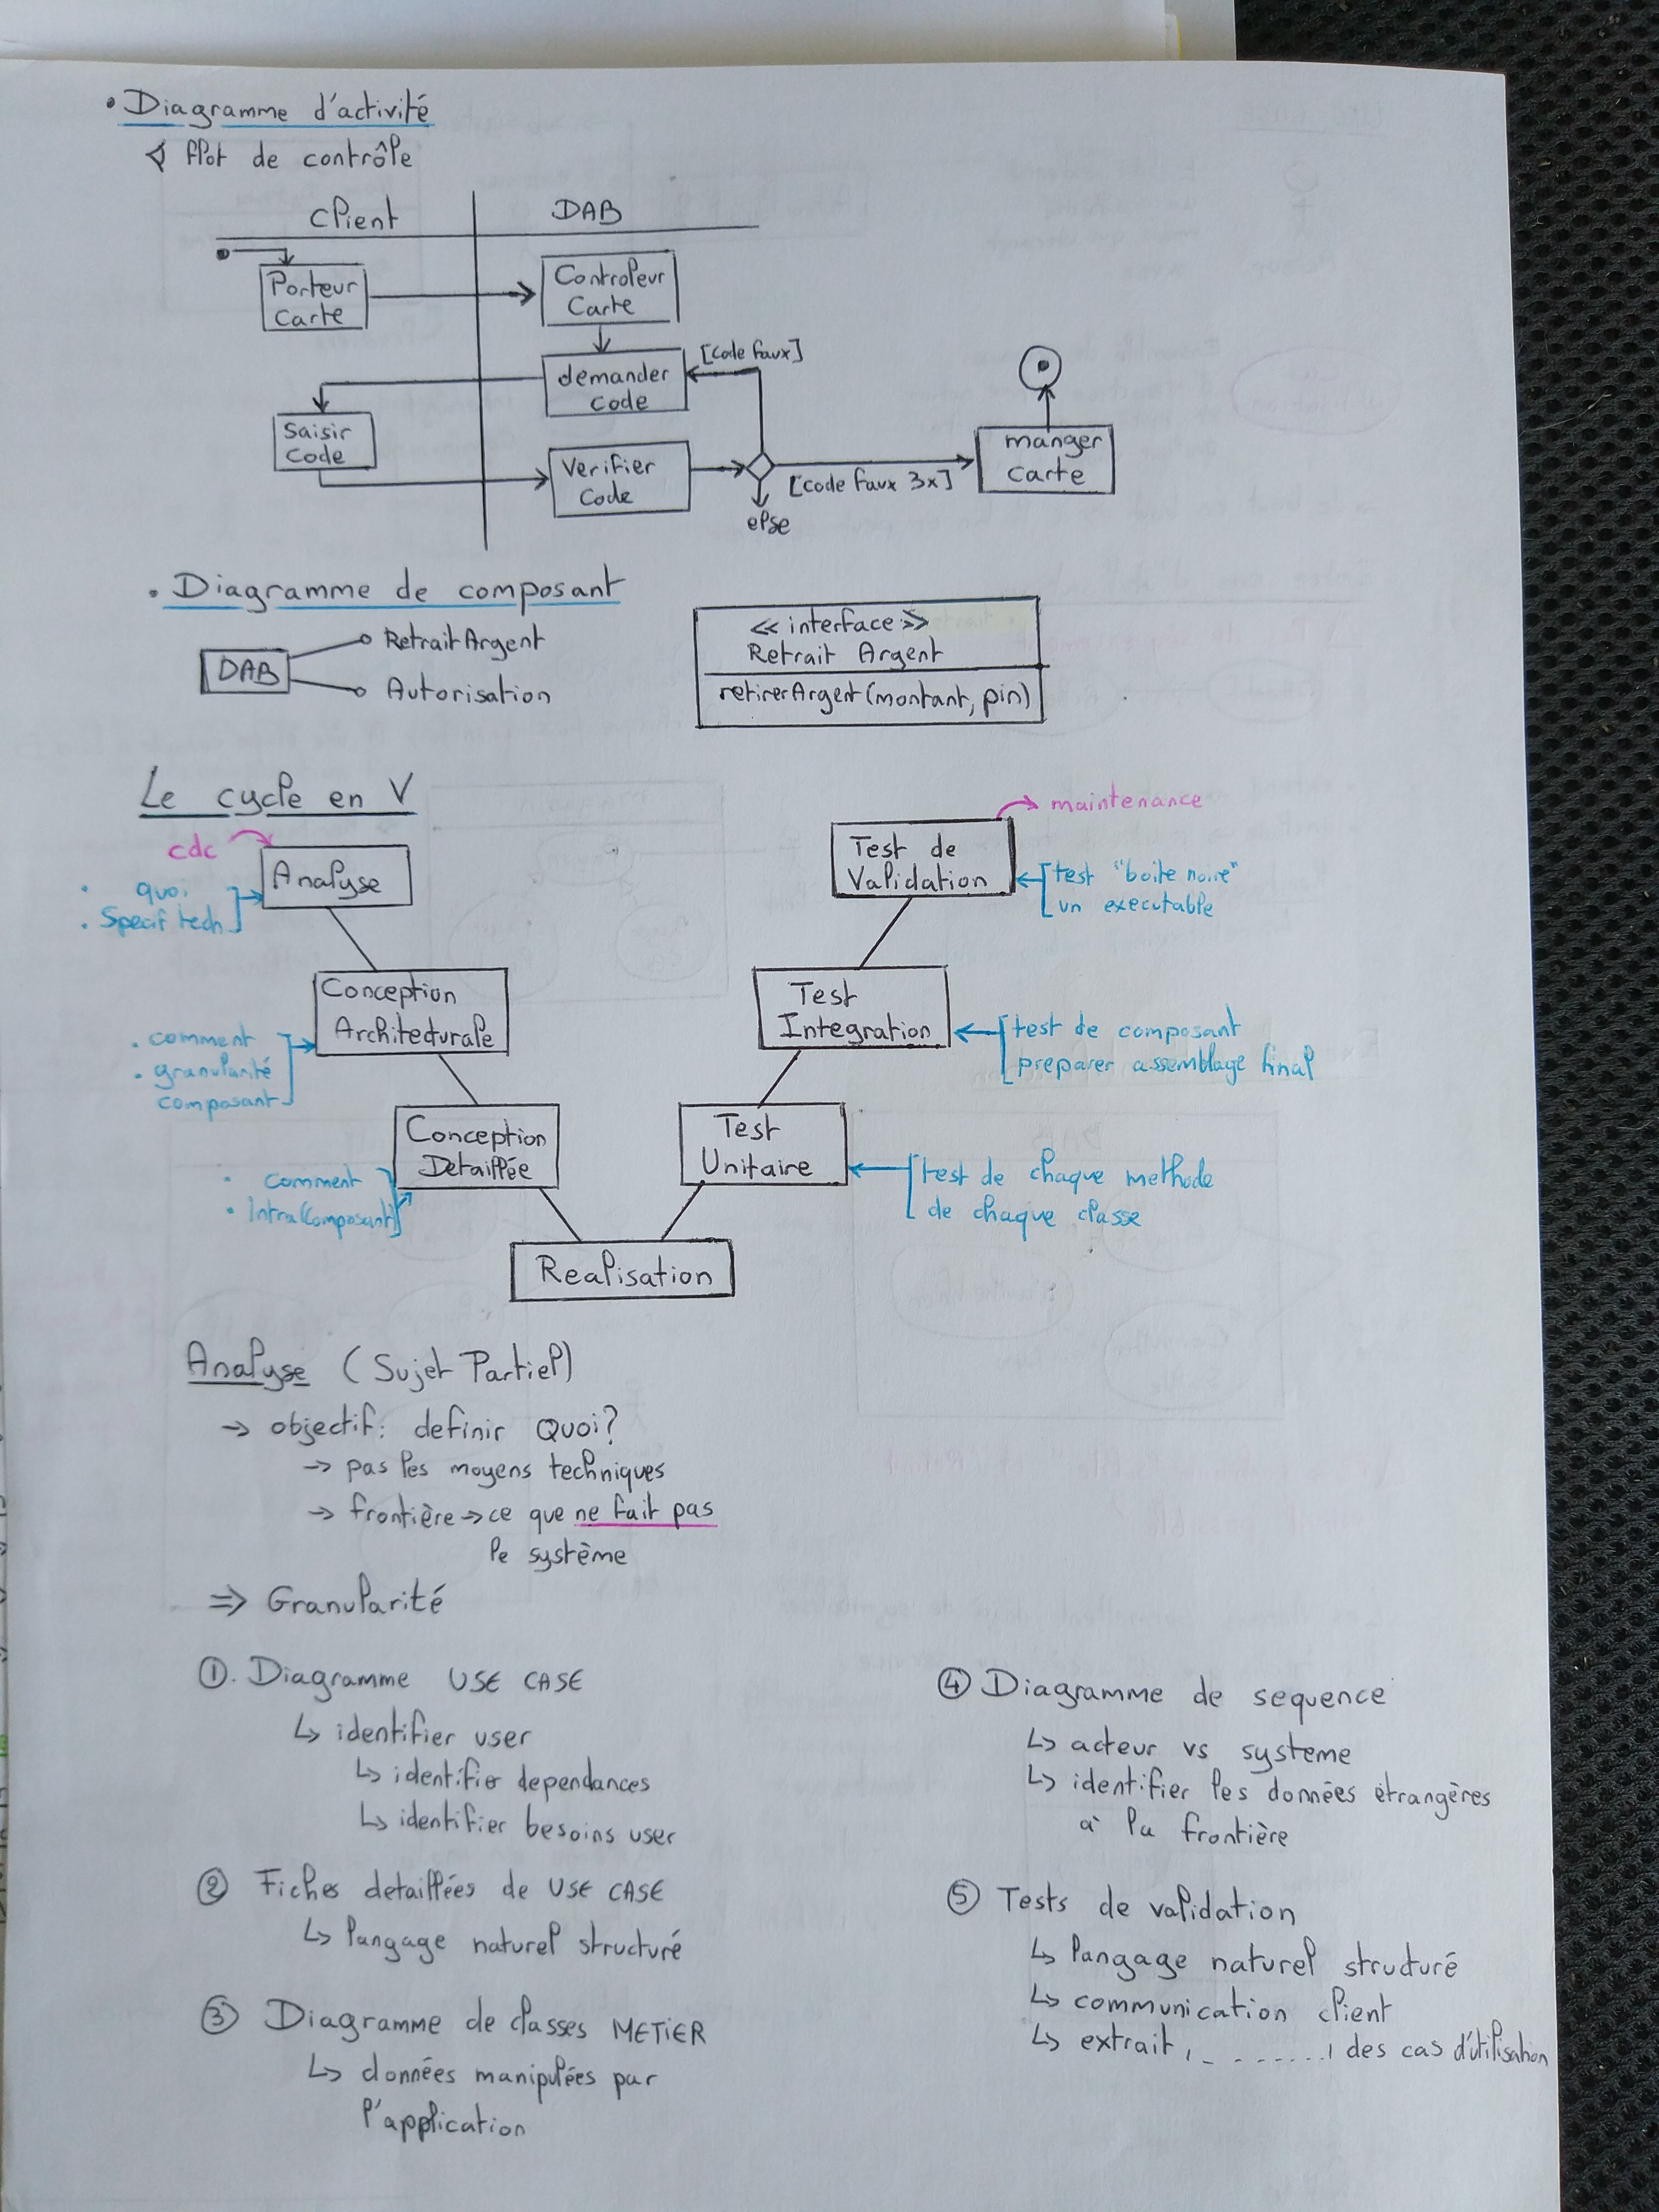 • Diagramme d'activité
∢ flot de contrôle
Client
DAB
Porteur
Carte
Controleur
Carte
demander
code
[code faux]
Saisir
Code
Verifier
Code
[code faux 3x]
else
manger
carte
• Diagramme de composant
DAB
RetraitArgent
Autorisation
<< interface >>
Retrait Argent
retirerArgent(montant, pin)
Le cycle en V
cdc
Analyse
• quoi
• Specif tech
Test de
Validation
maintenance
test "boite noire"
un executable
Conception
Architecturale
• comment
• granularité
composant
Test
Integration
test de composant
preparer assemblage final
Conception
Detaillée
• comment
• Intra(composant)
Test
Unitaire
test de chaque methode
de chaque classe
Realisation
Analyse (Sujet Partiel)
→ objectif: definir Quoi?
→ pas les moyens techniques
→ frontière → ce que ne fait pas
le système
⇒ Granularité
①. Diagramme USE CASE
↳ identifier user
↳ identifier dependances
↳ identifier besoins user
② Fiches detaillées de USE CASE
↳ langage naturel structuré
③ Diagramme de classes METiER
↳ données manipulées par
l'application
④ Diagramme de sequence
↳ acteur vs systeme
↳ identifier les données étrangères
à la frontière
⑤ Tests de validation
↳ langage naturel structuré
↳ communication client
↳ extrait, - - ....... des cas d'utilisation